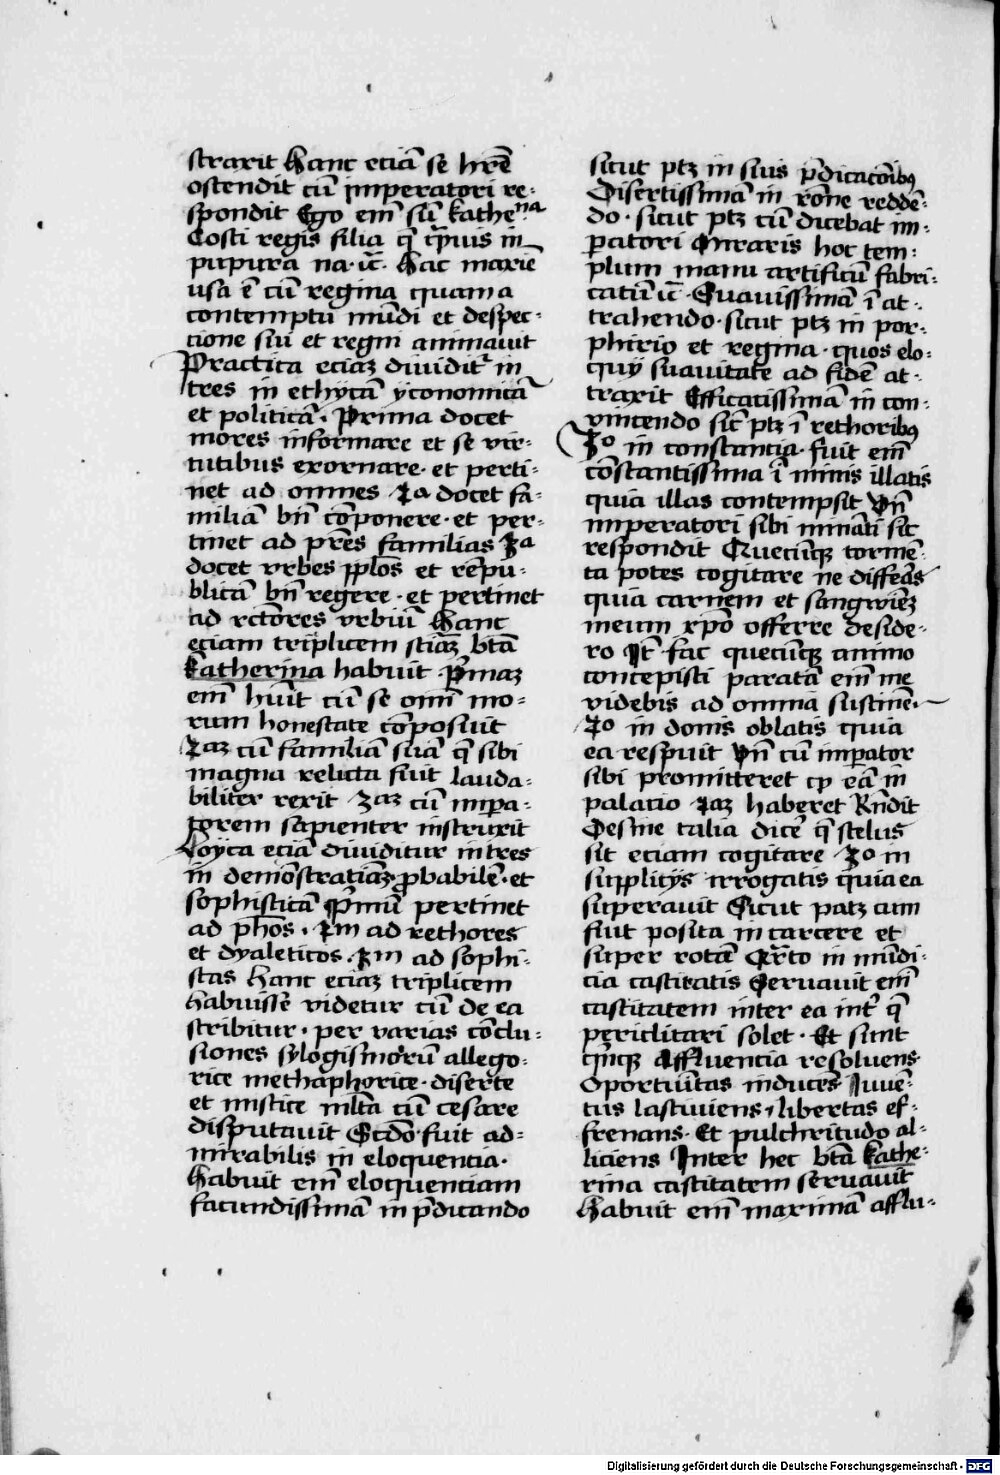 straxit Hanc eciā se hr̄e
ostendit cū imperatori re-
spondit Ego em̄ sū kathena
Costi regis filia q̄ q̄muis in
purpura na. uc̄. Hac maxīe
usa ē cū regina quam a
contemptū mūdi et despec-
tione sui et regni animauit
Practica eciaʒ diuidit᷑ in
tres in ethycā yconomicā
et politicā. Prima docet
mores informare et se vir-
tutibus exornare. et perti-
net ad omnes 2a docet fa-
miliā bn̄ cōponere. et per-
tinet ad pr̄es familias 3a
docet vrbes pplōs et rēpu-
blicā bn̄ regere. et pertinet
ad rctōres vrbiū Hanc
eciam triplicem sciāʒ btā
katherina habuit. Pͥmaʒ
em̄ hūit cū se om̄i mo-
rum honestate cōposuit
2aʒ cū familiā suā q̄ sibi
magna relicta fuit lauda-
biliter rexit 3aʒ cū impa-
torem sapienter instruxit
Loyca eciā diuiditur in tres
in demōstratiāʒ ꝓbabilē. et
sophisticā Pͥmū pertinet
ad ph̄os. 2m ad rethores
et dyaleticos. 3m ad sophi-
stas Hanc eciaʒ triplicem
habuisse videtur cū de ea
scribitur. per varias cōclu-
siones sylogismorū allego-
rice methaphorice. diserte
et mistice ml̄ta cū cesare
disputauit Scdō. fuit ad-
mirabilis in eloquencia.
Habuit em̄ eloquenciam
facundissimā in p̄dicando
sicut ptʒ in suis p̄dicacōibꝫ
Disertissimā in rōne reddē-
do. sicut ptʒ cū dicebat im-
patori Miraris hoc tem-
plum manu artificū fabri-
catū uc̄. Suauissimā ī at-
trahendo. sicut ptʒ in por-
phirio et regina. quos elo-
quij suauitate ad fidē at-
traxit Efficacissimā in con-
vincendo sic̄ ptʒ ī rethoribꝫ
3o in constancia. fuit em̄
cōstantissima ī minis illatis
quia illas contempsit Vn̄
imperatori sibi mināti sic
respondit Quecūqʒ tormē-
ta potes cogitare ne differas
quia carnem et sangwineʒ
meum xpō offerre deside-
ro It̄ fac quecūqʒ animo
concepisti paratā em̄ me
videbis ad omnia sustinē
2o in donis oblatis quia
ea respuit Vn̄ cū impator
sibi promitteret ꝙ eā in
palacio 2aʒ haberet Rn̄dit
Desine talia dicē q̄ scelus
sit eciam cogitare 3o in
supplicijs irrogatis quia ea
superauit Sicut patʒ cum
fuit posita in carcere et
super rotā Qr̄to in mūdi-
cia castitatis Seruauit em̄
castitatem inter ea int᷑ q̄
periclitari solet. Et sunt
quiqʒ Affluencia resoluens
Oportūitas inducēs Juuē-
tus lasciuiens, libertas ef-
frenans. Et pulchritudo al-
liciens Inter hec btā kathe-
rina castitatem seruauit
Habuit em̄ maximā afflu-
Digitalisierung gefördert durch die Deutsche Forschungsgemeinschaft - DFG